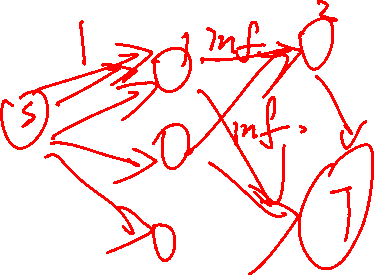 1 inf. 2
S
inf.
T